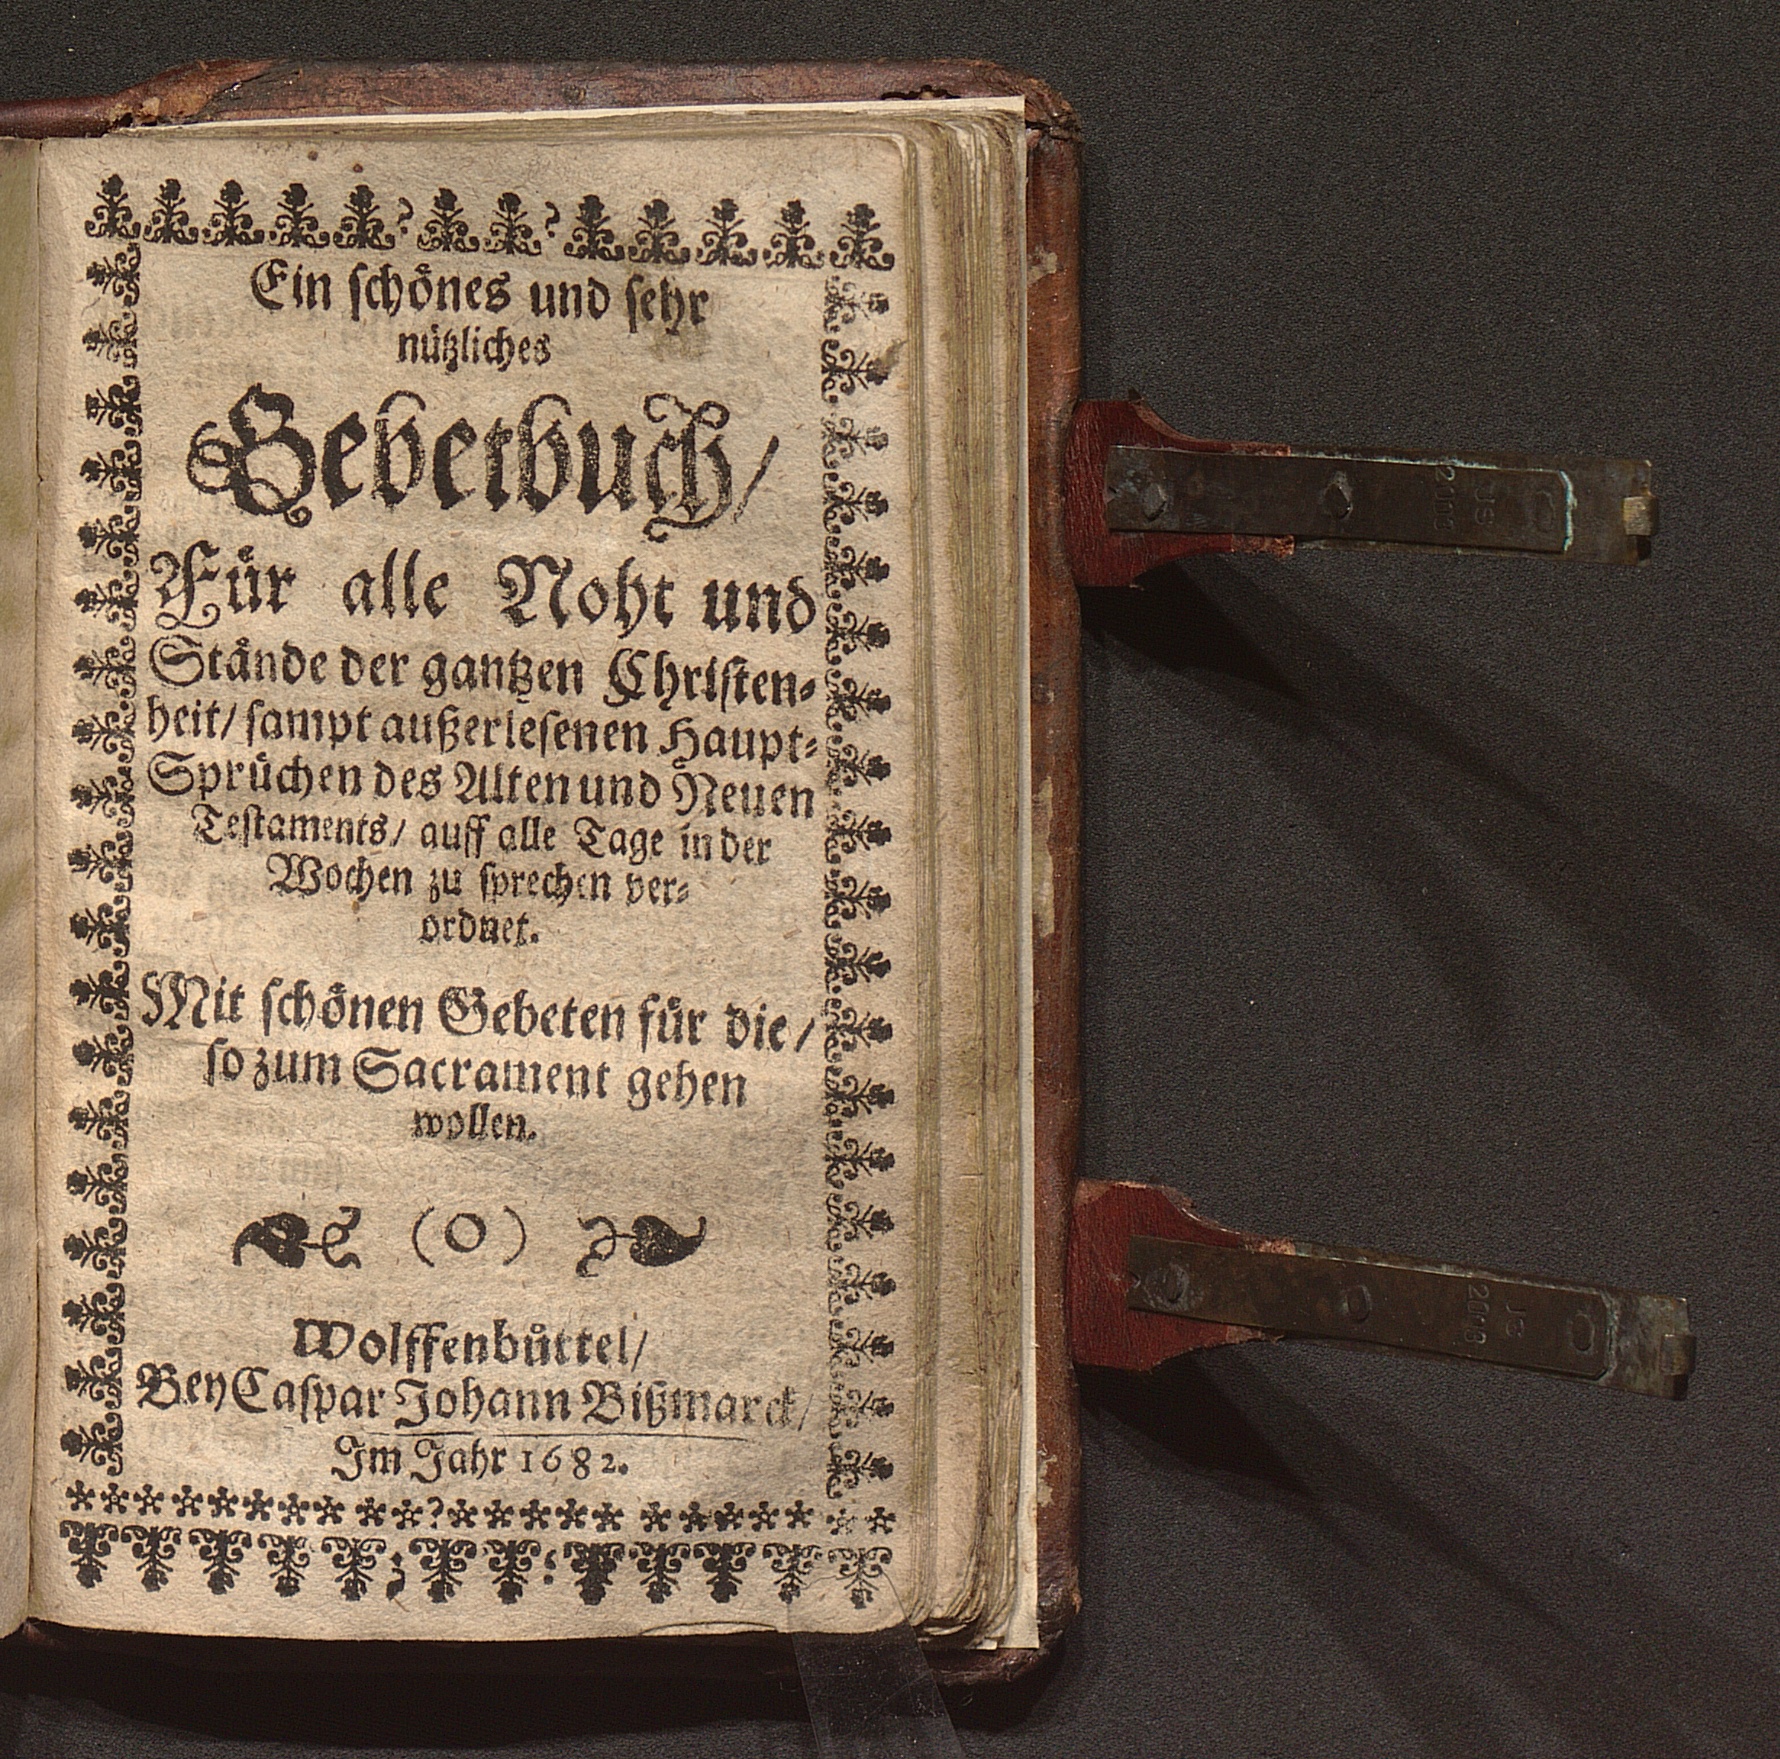 Ein schönes und sehr
nützliches
Gebetbuch/
Für alle Noht und
Stände der gantzen Christen-
heit/ sampt außerlesenen Haupt-
Sprüchen des Alten und Neuen
Testaments/ auff alle Tage in der
Wochen zu sprechen ver-
ordnet.
Mit schönen Gebeten für die/
so zum Sacrament gehen
wollen.
(O)
Wolffenbüttel/
Bey Caspar Johann Bißmarck/
Im Jahr 1682.
JS
2008
JS
2008